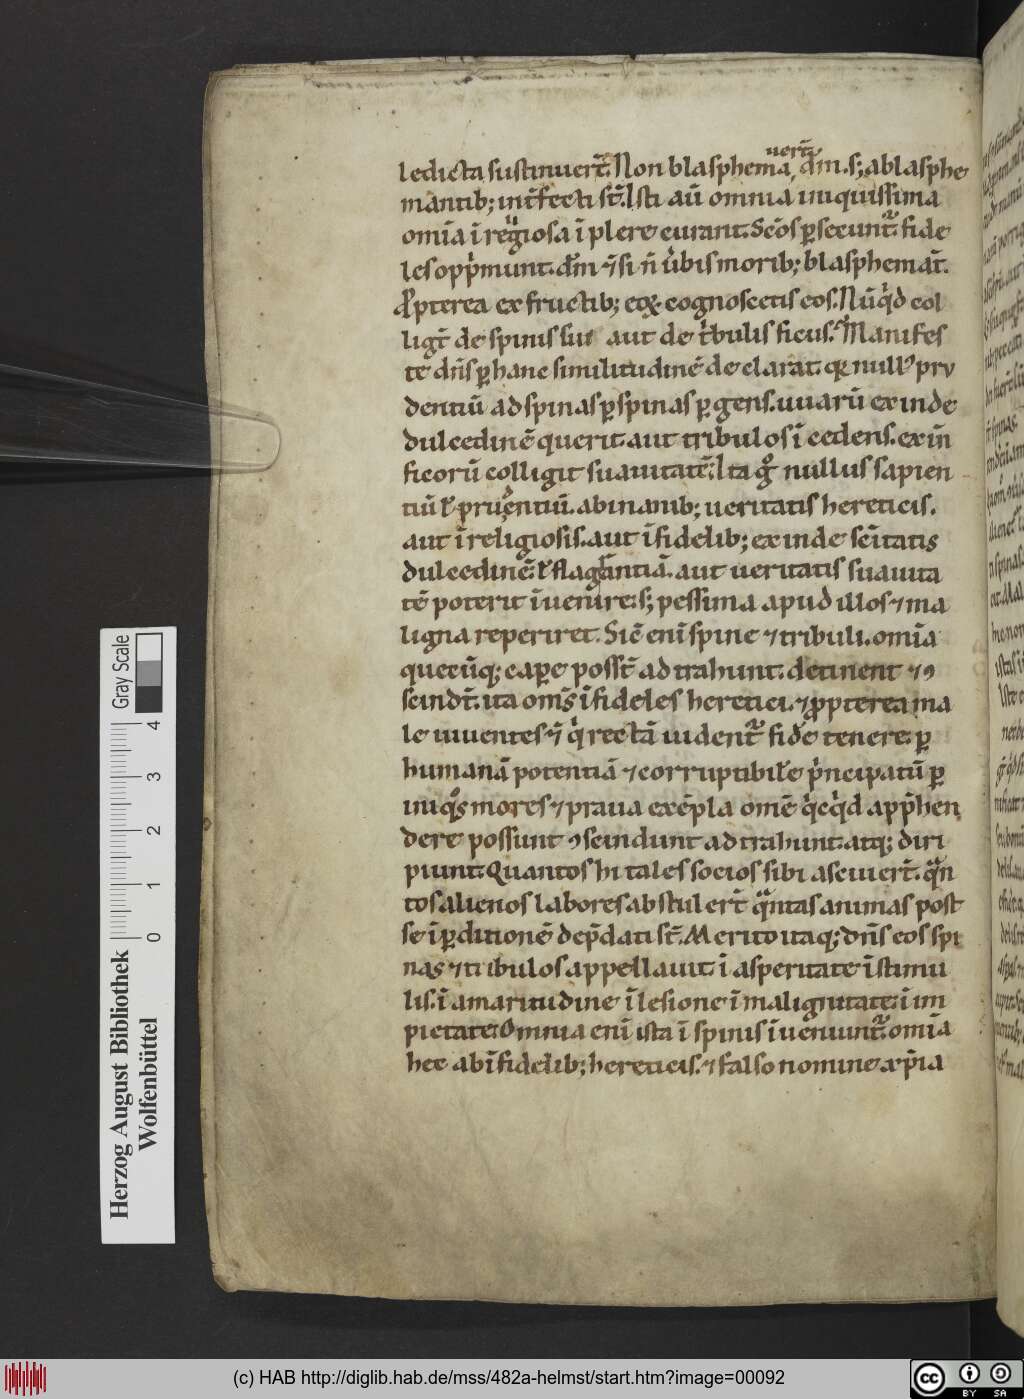 ledicta sustinuer̄t. Non blasphema uer̄t dm̄. s; a blasphe
mantib; int̄fecti st̄. Isti aū omnia iniquissima
om̄ia irͥegiosa ī plere curant. Sc̄os ꝑsecunt᷑ fide
les oppͥmunt. dm̄ ⁊ si n̄ uͥbis morib; blasphemāt.
Ꝓpterea ex fructib; eoꝝ cognoscetis eos. Nūqͥd col
ligt̄ de spinis uu aut de tͥbulis ficus. Manifes
tē dn̄s ꝑ hanc similitudinē declarat. qꝛ null᷒ pru
dentiū ad spinas ꝑ spinas ꝑgens. uuarū exinde
dulcedinē querit. aut tribulos īcedens. ex in̄
ficorū colligit suauitatē. Ita gͦ nullus sapien
tiū ł prudentiū. ab inanib; ueritatis hereticis.
aut ī religiosis. aut īfidelib; exinde sc̄itatis
dulcedinē. ł flagantiā. aut ueritatis suauita
tē poterit īuenire. s; pessima apud illos ⁊ ma
ligna reperiret. Sic enī spine ⁊ tribuli. om̄ia
quecūq; capere poss̄t adtrahunt. detinent ⁊ ꝯ
scindt̄. ita om̄s īfideles heretici. ⁊ ꝓpterea ma
le uiuentes ⁊ qͥ rectā uident᷑ fidē tenere. ꝑ
humanā potentiā ⁊ corruptibile pͥncipatū ꝑ
iniqͦs mores ⁊ praua exēpla omē qͥcqͥd app̄hen
dere possunt ꝯscindunt adtrahunt. atq; diri
piunt. Quantos hi tales socios sibi asciuer̄t. qͣn
tos alienos labores abstuler̄t qͣntas animas post
se ī ꝑditionē dep̄dati st̄. Merito itaq; dn̄s eos spi
nas ⁊ tribulos appellauit. ī asperitate ī stimu
lis. ī amaritudine ī lesione ī malignitate. ī im
pietate. Omnia enī ista ī spinis īueniunt᷑. om̄ia
hec ab īfidelib; hereticis. ⁊ falso nomine xp̄ia
Herzog August Bibliothek
Wolfenbüttel
0 1 2 3 4
Gray Scale
(c) HAB http://diglib.hab.de/mss/482a-helmst/start.htm?image=00092
cc BY SA